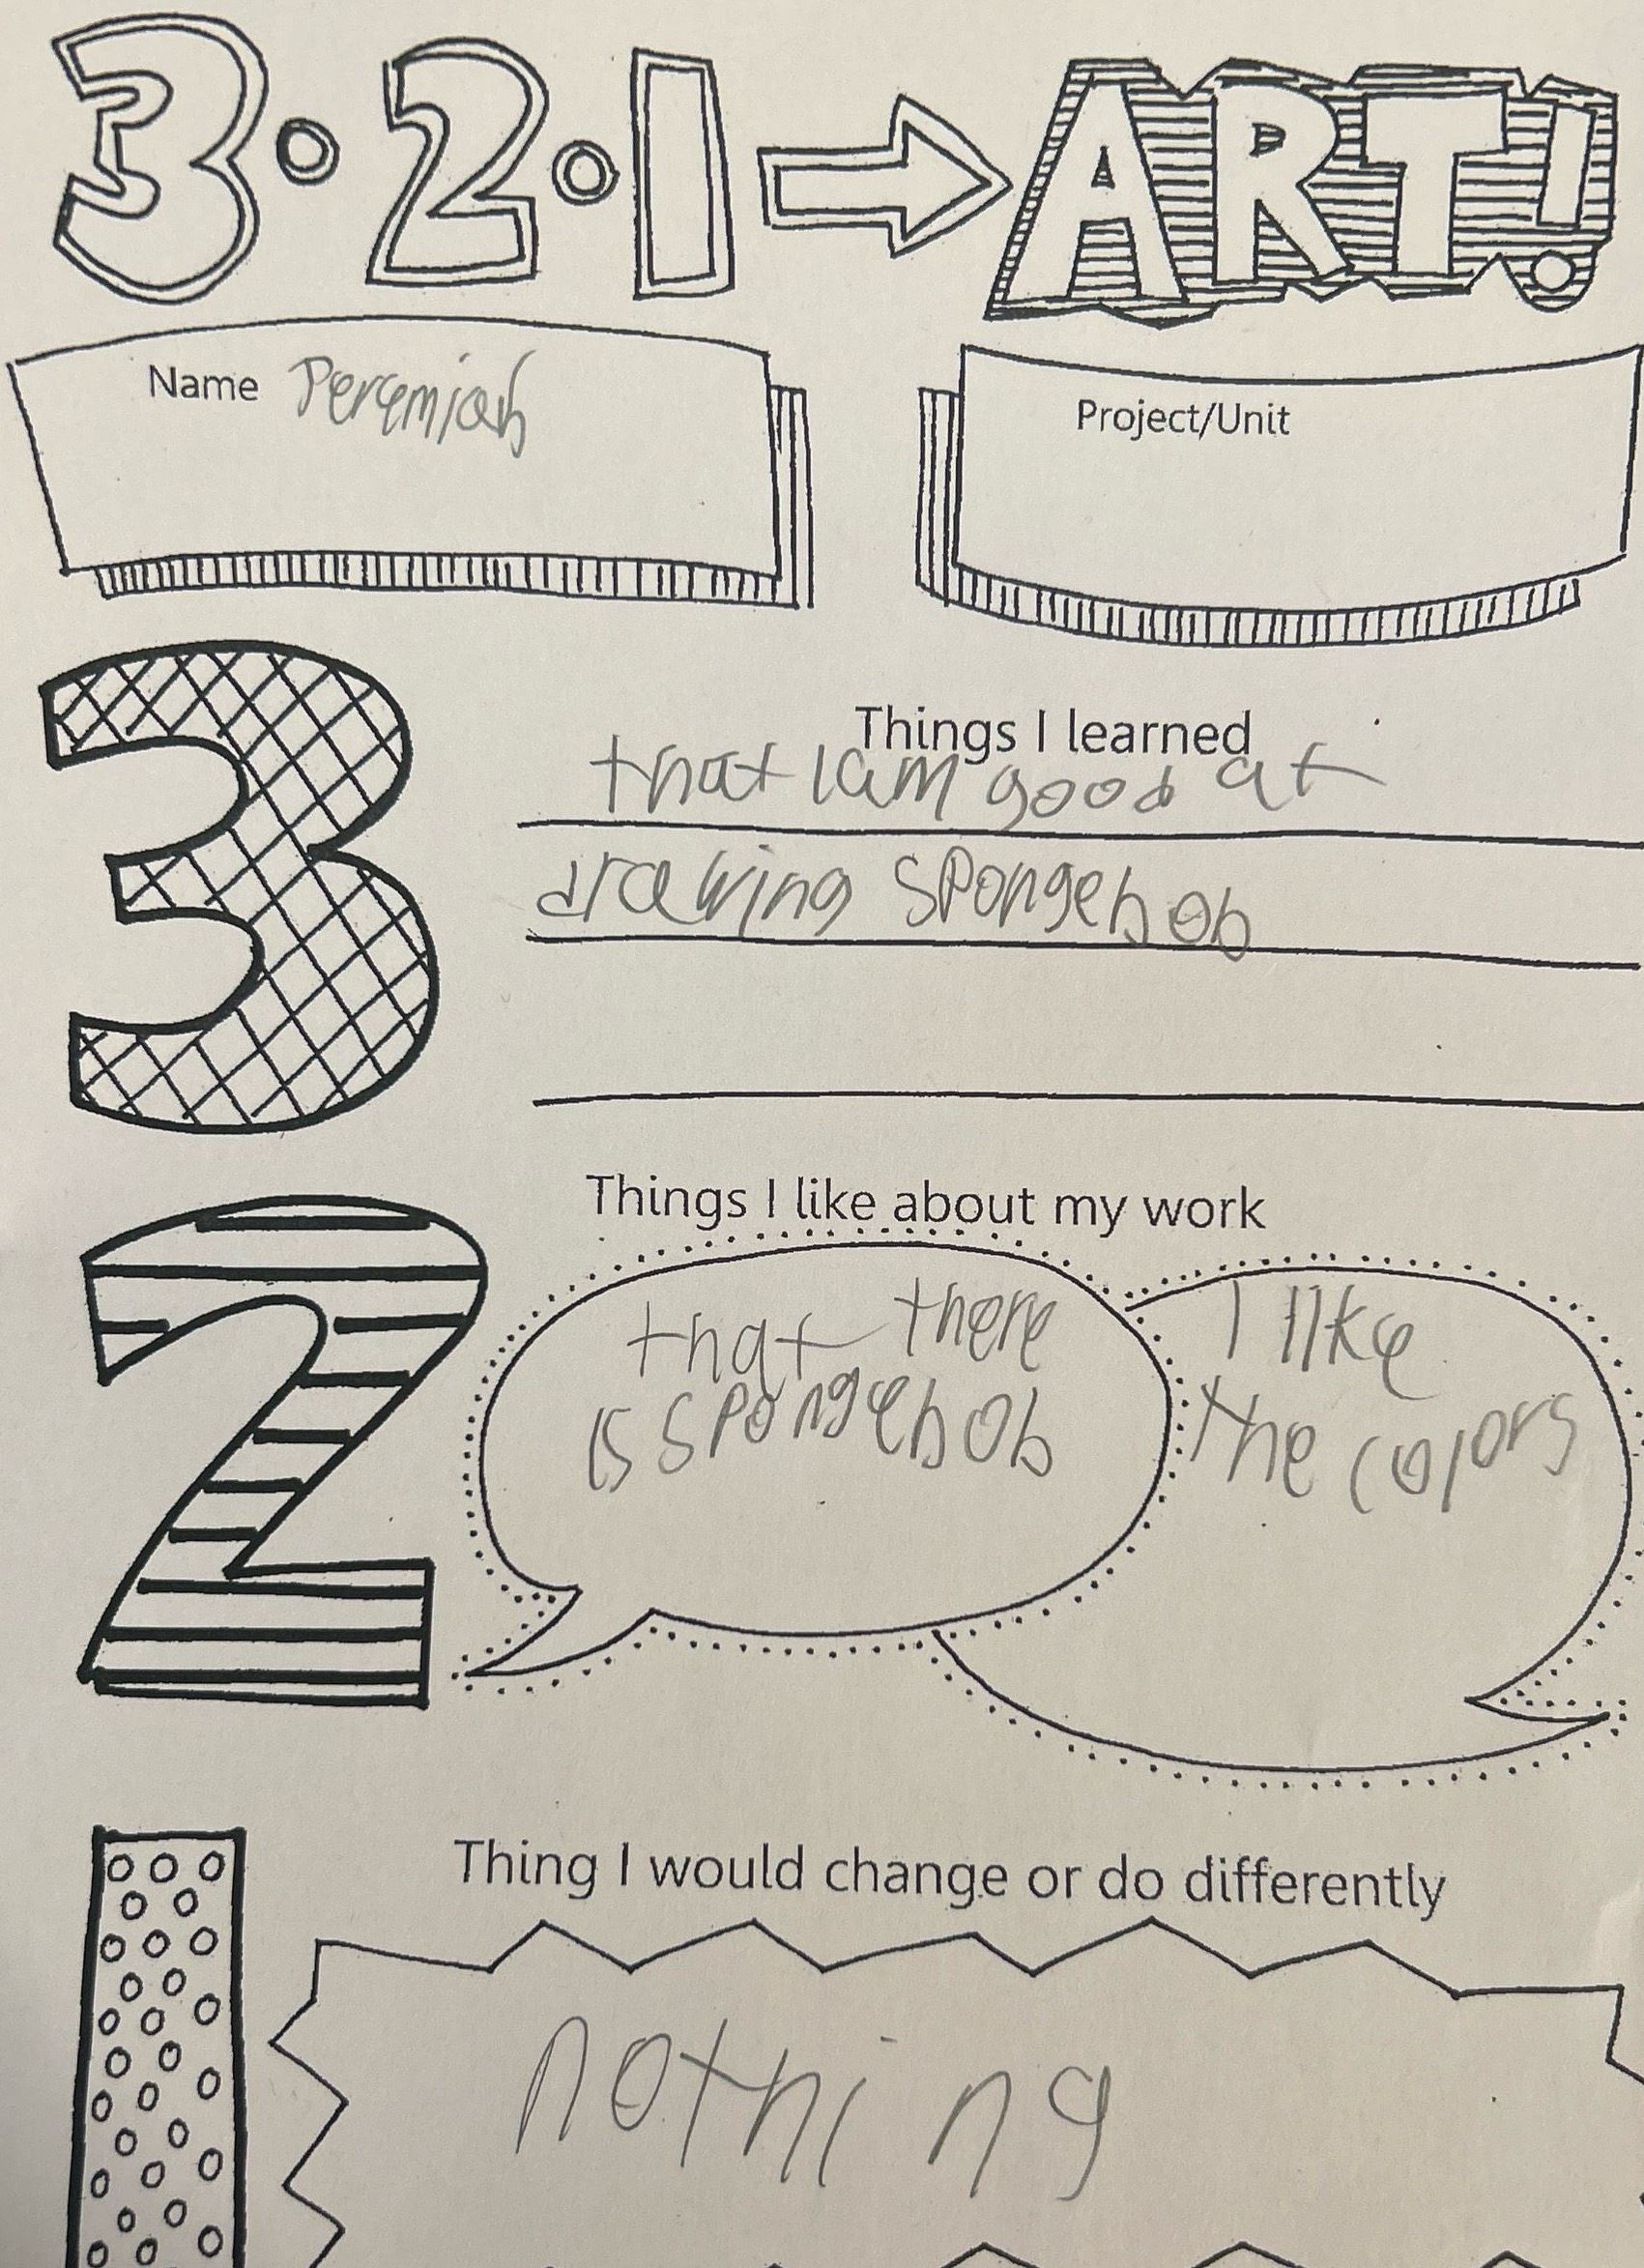 3·2·1 → ART!
Name Jeremiah
Project/Unit
3
Things I learned
that I am good at
drawing Spongebob
2
Things I like about my work
that there
is Spongebob
I like
the colors
1
Thing I would change or do differently
nothing